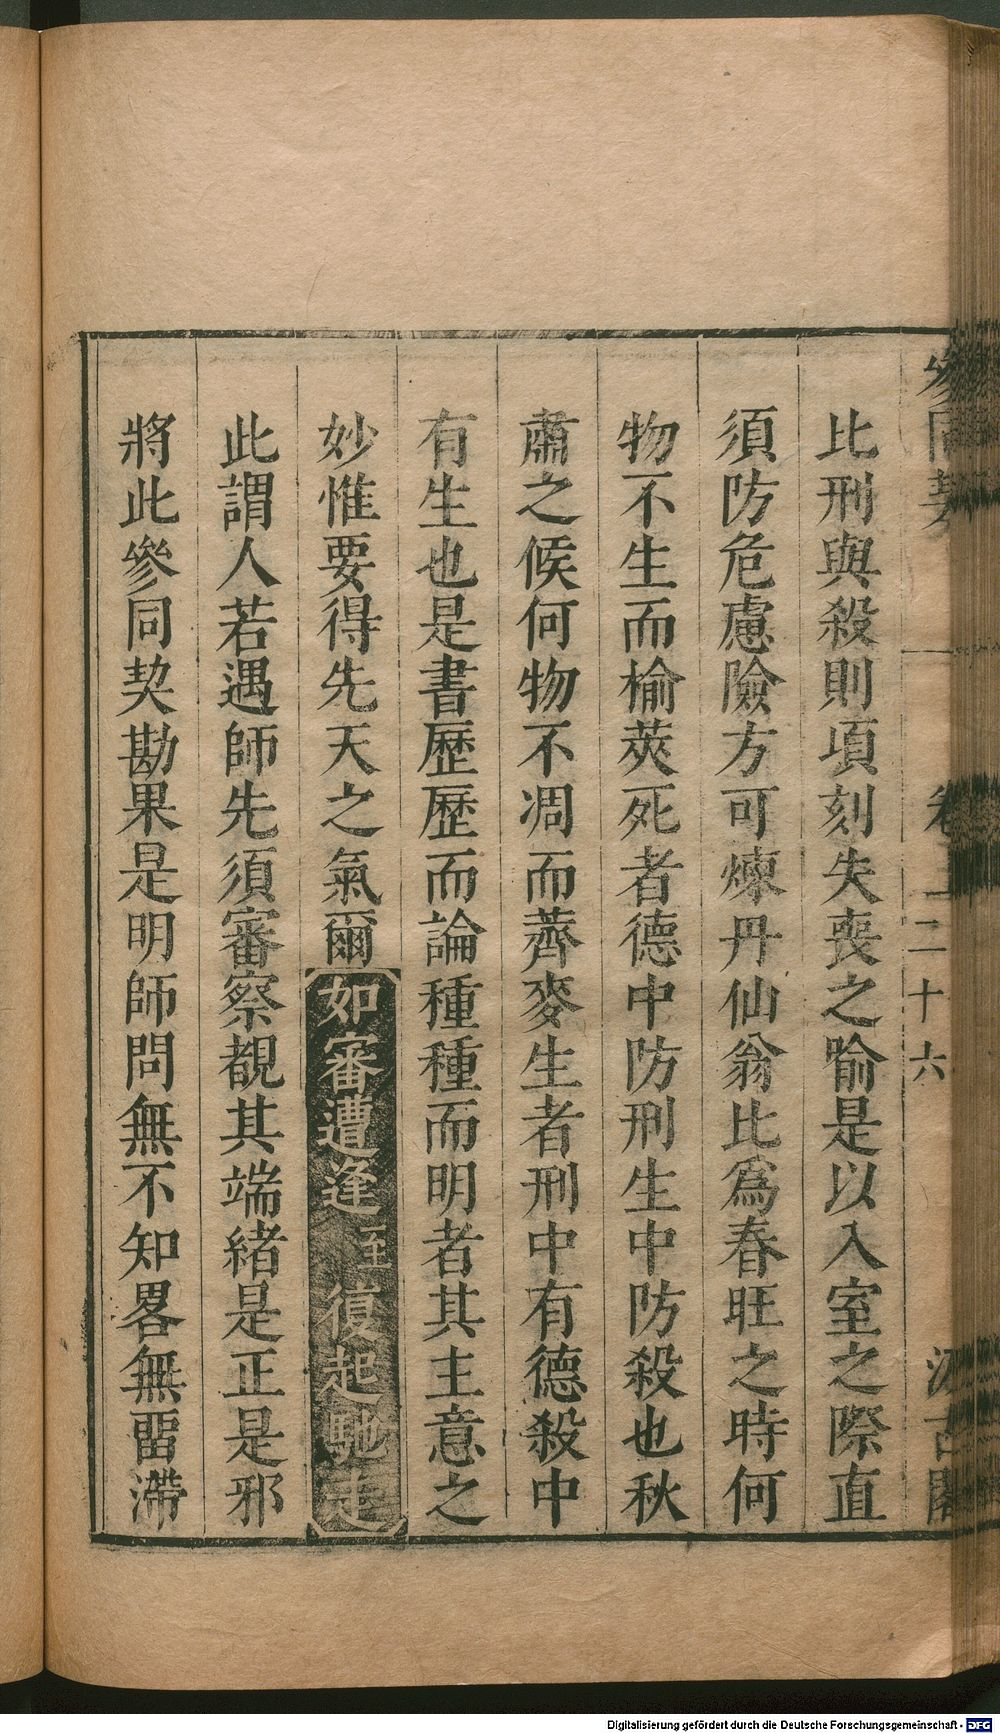 參同契 卷 二十六 汲古閣
比刑與殺則項刻失喪之喻是以入室之際直
須防危慮險方可煉丹仙翁比爲春旺之時何
物不生而榆莢死者德中防刑生中防殺也秋
肅之候何物不凋而薺麥生者刑中有德殺中
有生也是書歷歷而論種種而明者其主意之
妙惟要得先天之氣爾如審遭逢至復起馳走
此謂人若遇師先須審察覩其端緒是正是邪
將此參同契勘果是明師問無不知畧無畱滯
Digitalisierung gefördert durch die Deutsche Forschungsgemeinschaft - DFG